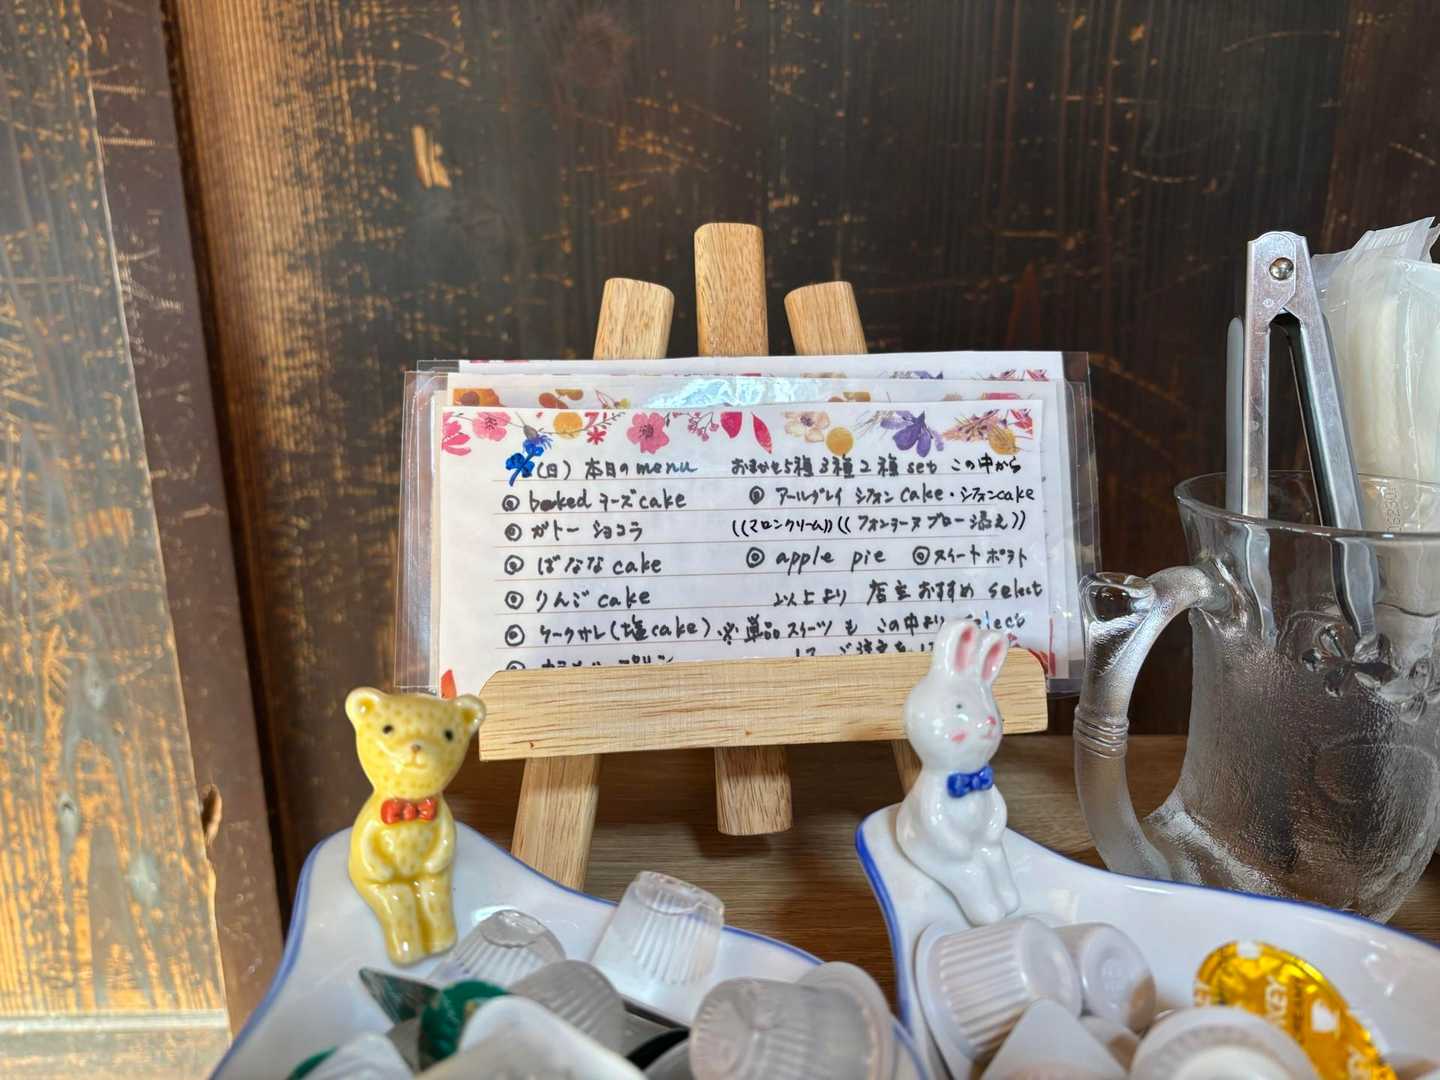 (日) 本日のmenu おまかせ5種3種2種 set この中から
◎ baked チーズcake ◎ アールグレイ シフォンcake・シフォンcake
◎ ガトー ショコラ ((マロンクリーム)) ((フォンテーヌブロー添え))
◎ ばなな cake ◎ apple pie ◎スイートポテト
◎ りんご cake 以上より 店主おすすめ select
◎ ケークサレ(塩cake) ※単品スイーツも この中より select
して ご注文を